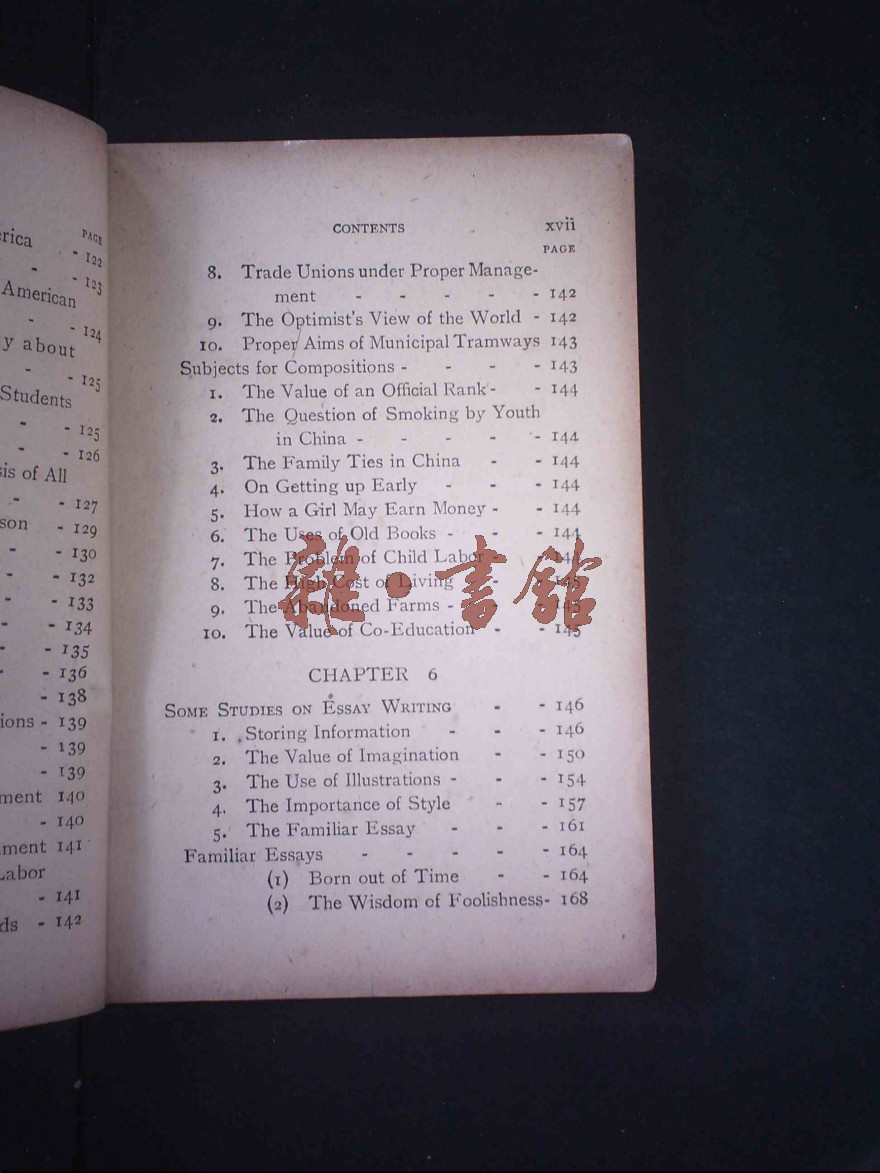 PAGE
erica
- 122
- - 123
American
- - 124
y about
- - 125
Students
- - 125
- - 126
sis of All
- - 127
son - 129
- - 130
- - 132
- - 133
- - 134
- - 135
- - 136
- 138
ions - 139
- 139
- 139
ment 140
- 140
ment 141
Labor
- 141
ds - 142
CONTENTS xvii
PAGE
8. Trade Unions under Proper Manage-
ment - - - - - 142
9. The Optimist's View of the World - 142
10. Proper Aims of Municipal Tramways 143
Subjects for Compositions - - - - 143
1. The Value of an Official Rank - - 144
2. The Question of Smoking by Youth
in China - - - - - 144
3. The Family Ties in China - - 144
4. On Getting up Early - - - 144
5. How a Girl May Earn Money - - 144
6. The Uses of Old Books - - - 144
7. The Problem of Child Labor - - 144
8. The High Cost of Living - - 145
9. The Abandoned Farms - - - 145
10. The Value of Co-Education - - 145
雜·書館
CHAPTER 6
SOME STUDIES ON ESSAY WRITING - - 146
1. Storing Information - - - 146
2. The Value of Imagination - - 150
3. The Use of Illustrations - - - 154
4. The Importance of Style - - 157
5. The Familiar Essay - - - 161
Familiar Essays - - - - - 164
(1) Born out of Time - - 164
(2) The Wisdom of Foolishness- 168